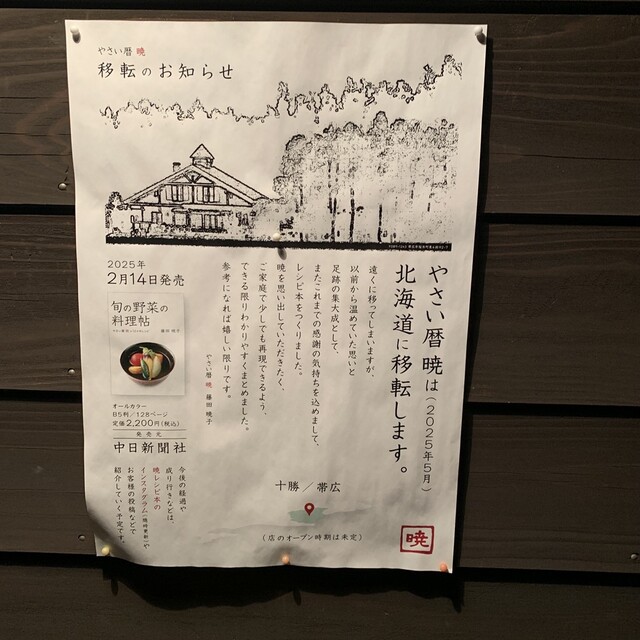 やさい暦 暁
移転のお知らせ
やさい暦 暁は(2025年5月)
北海道に移転します。
遠くに移ってしまいますが、
以前から温めていた思いと
足跡の集大成として、
またこれまでの感謝の気持ちを込めまして、
レシピ本をつくりました。
暁を思い出していただきたく、
ご家庭で少しでも再現できるよう、
できる限りわかりやすくまとめました。
参考になれば嬉しい限りです。
やさい暦 暁 藤田 暁子
2025年
2月14日発売
旬の野菜の
料理帖
オールカラー
B5判/128ページ
定価2,200円(税込)
発売元
中日新聞社
今後の経過や
成り行きなどは、
暁レシピ本の
インスタグラム(随時更新)や
お客様の投稿などで
紹介していく予定です。
十勝/帯広
(店のオープン時期は未定)
暁